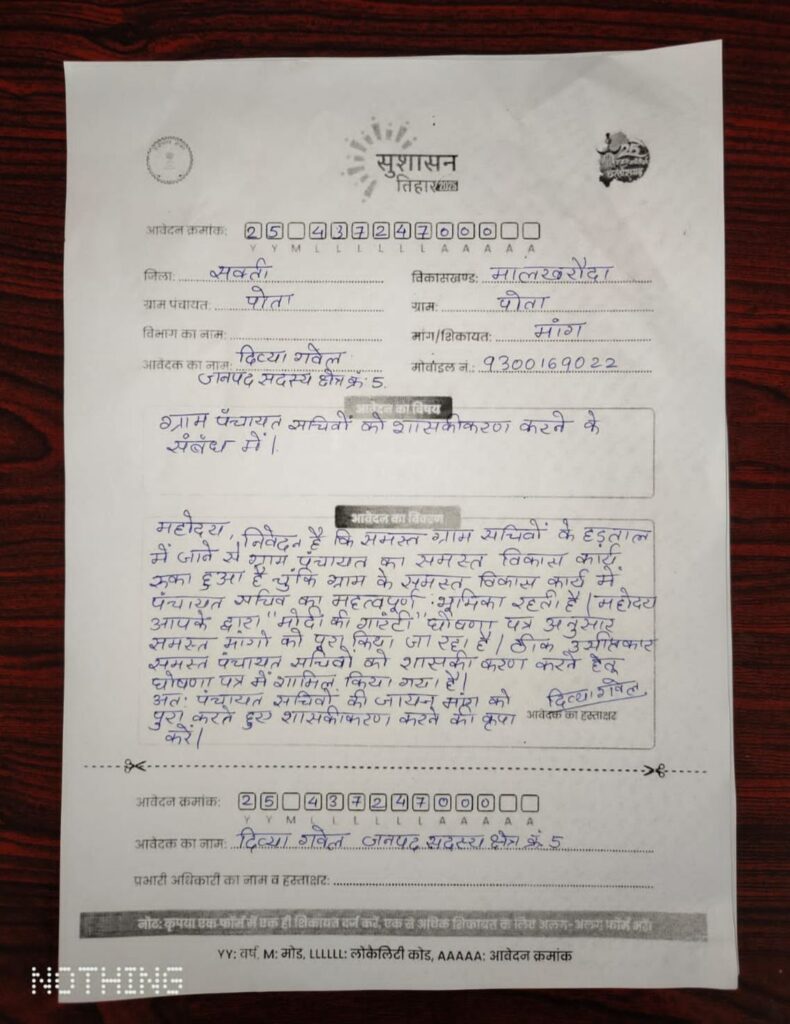 सुशासन
तिहार 2025
25
आवेदन क्रमांक: 25 437247000
Y Y M L L L L L L A A A A A
जिला: सक्ती
विकासखण्ड: मालखरौदा
ग्राम पंचायत: पोता
ग्राम: पोता
विभाग का नाम:
मांग/शिकायत: मांग
आवेदक का नाम: दिव्या गवेल
जनपद सदस्य क्षेत्र क्रं 5.
मोबाईल नं.: 9300169022
आवेदन का विषय
ग्राम पंचायत सचिवों को शासकीकरण करने के
संबंध में।
आवेदन का विवरण
महोदय,
निवेदन है कि समस्त ग्राम सचिवों के हड़ताल
में जाने से ग्राम पंचायत का समस्त विकास कार्य
रुका हुआ है चुंकि ग्राम के समस्त विकास कार्य में
पंचायत सचिव का महत्वपूर्ण भूमिका रहती है। महोदय
आपके द्वारा "मोदी की गारंटी" घोषणा पत्र अनुसार
समस्त मांगो को पूरा किया जा रहा है। ठीक उसीप्रकार
समस्त पंचायत सचिवों को शासकीकरण करने हेतू
घोषणा पत्र में शामिल किया गया है।
अतः पंचायत सचिवों की जायज मांग को
पुरा करते हुए शासकीकरण करने की कृपा
करें।
दिव्या गवेल
आवेदक का हस्ताक्षर
आवेदन क्रमांक: 25 437247000
Y Y M L L L L L L A A A A A
आवेदक का नाम: दिव्या गवेल जनपद सदस्य क्षेत्र क्रं 5
प्रभारी अधिकारी का नाम व हस्ताक्षर:
नोट: कृपया एक फॉर्म में एक ही शिकायत दर्ज करें, एक से अधिक शिकायत के लिए अलग-अलग फॉर्म भरें।
YY: वर्ष, M: मोड, LLLLLL: लोकैलिटी कोड, AAAAA: आवेदन क्रमांक
NOTHING